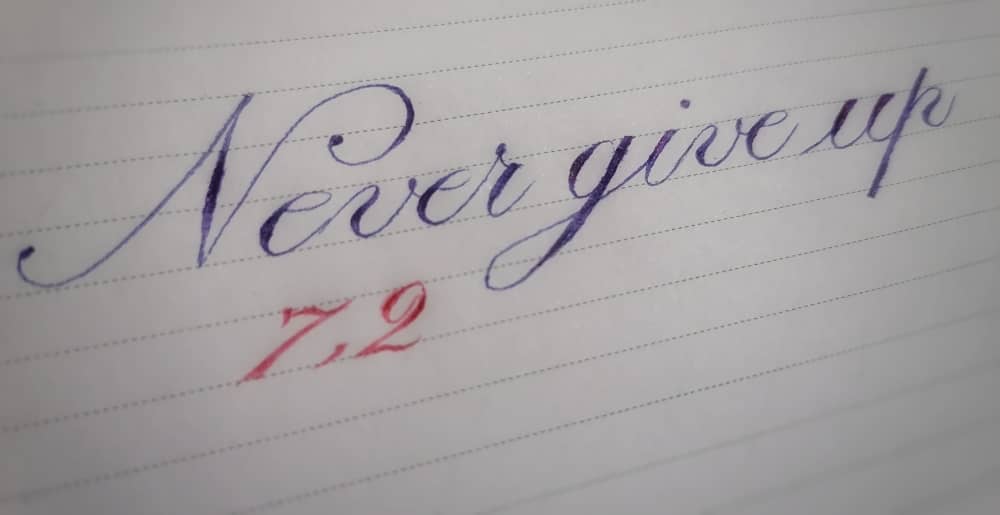 Never give up
7,2